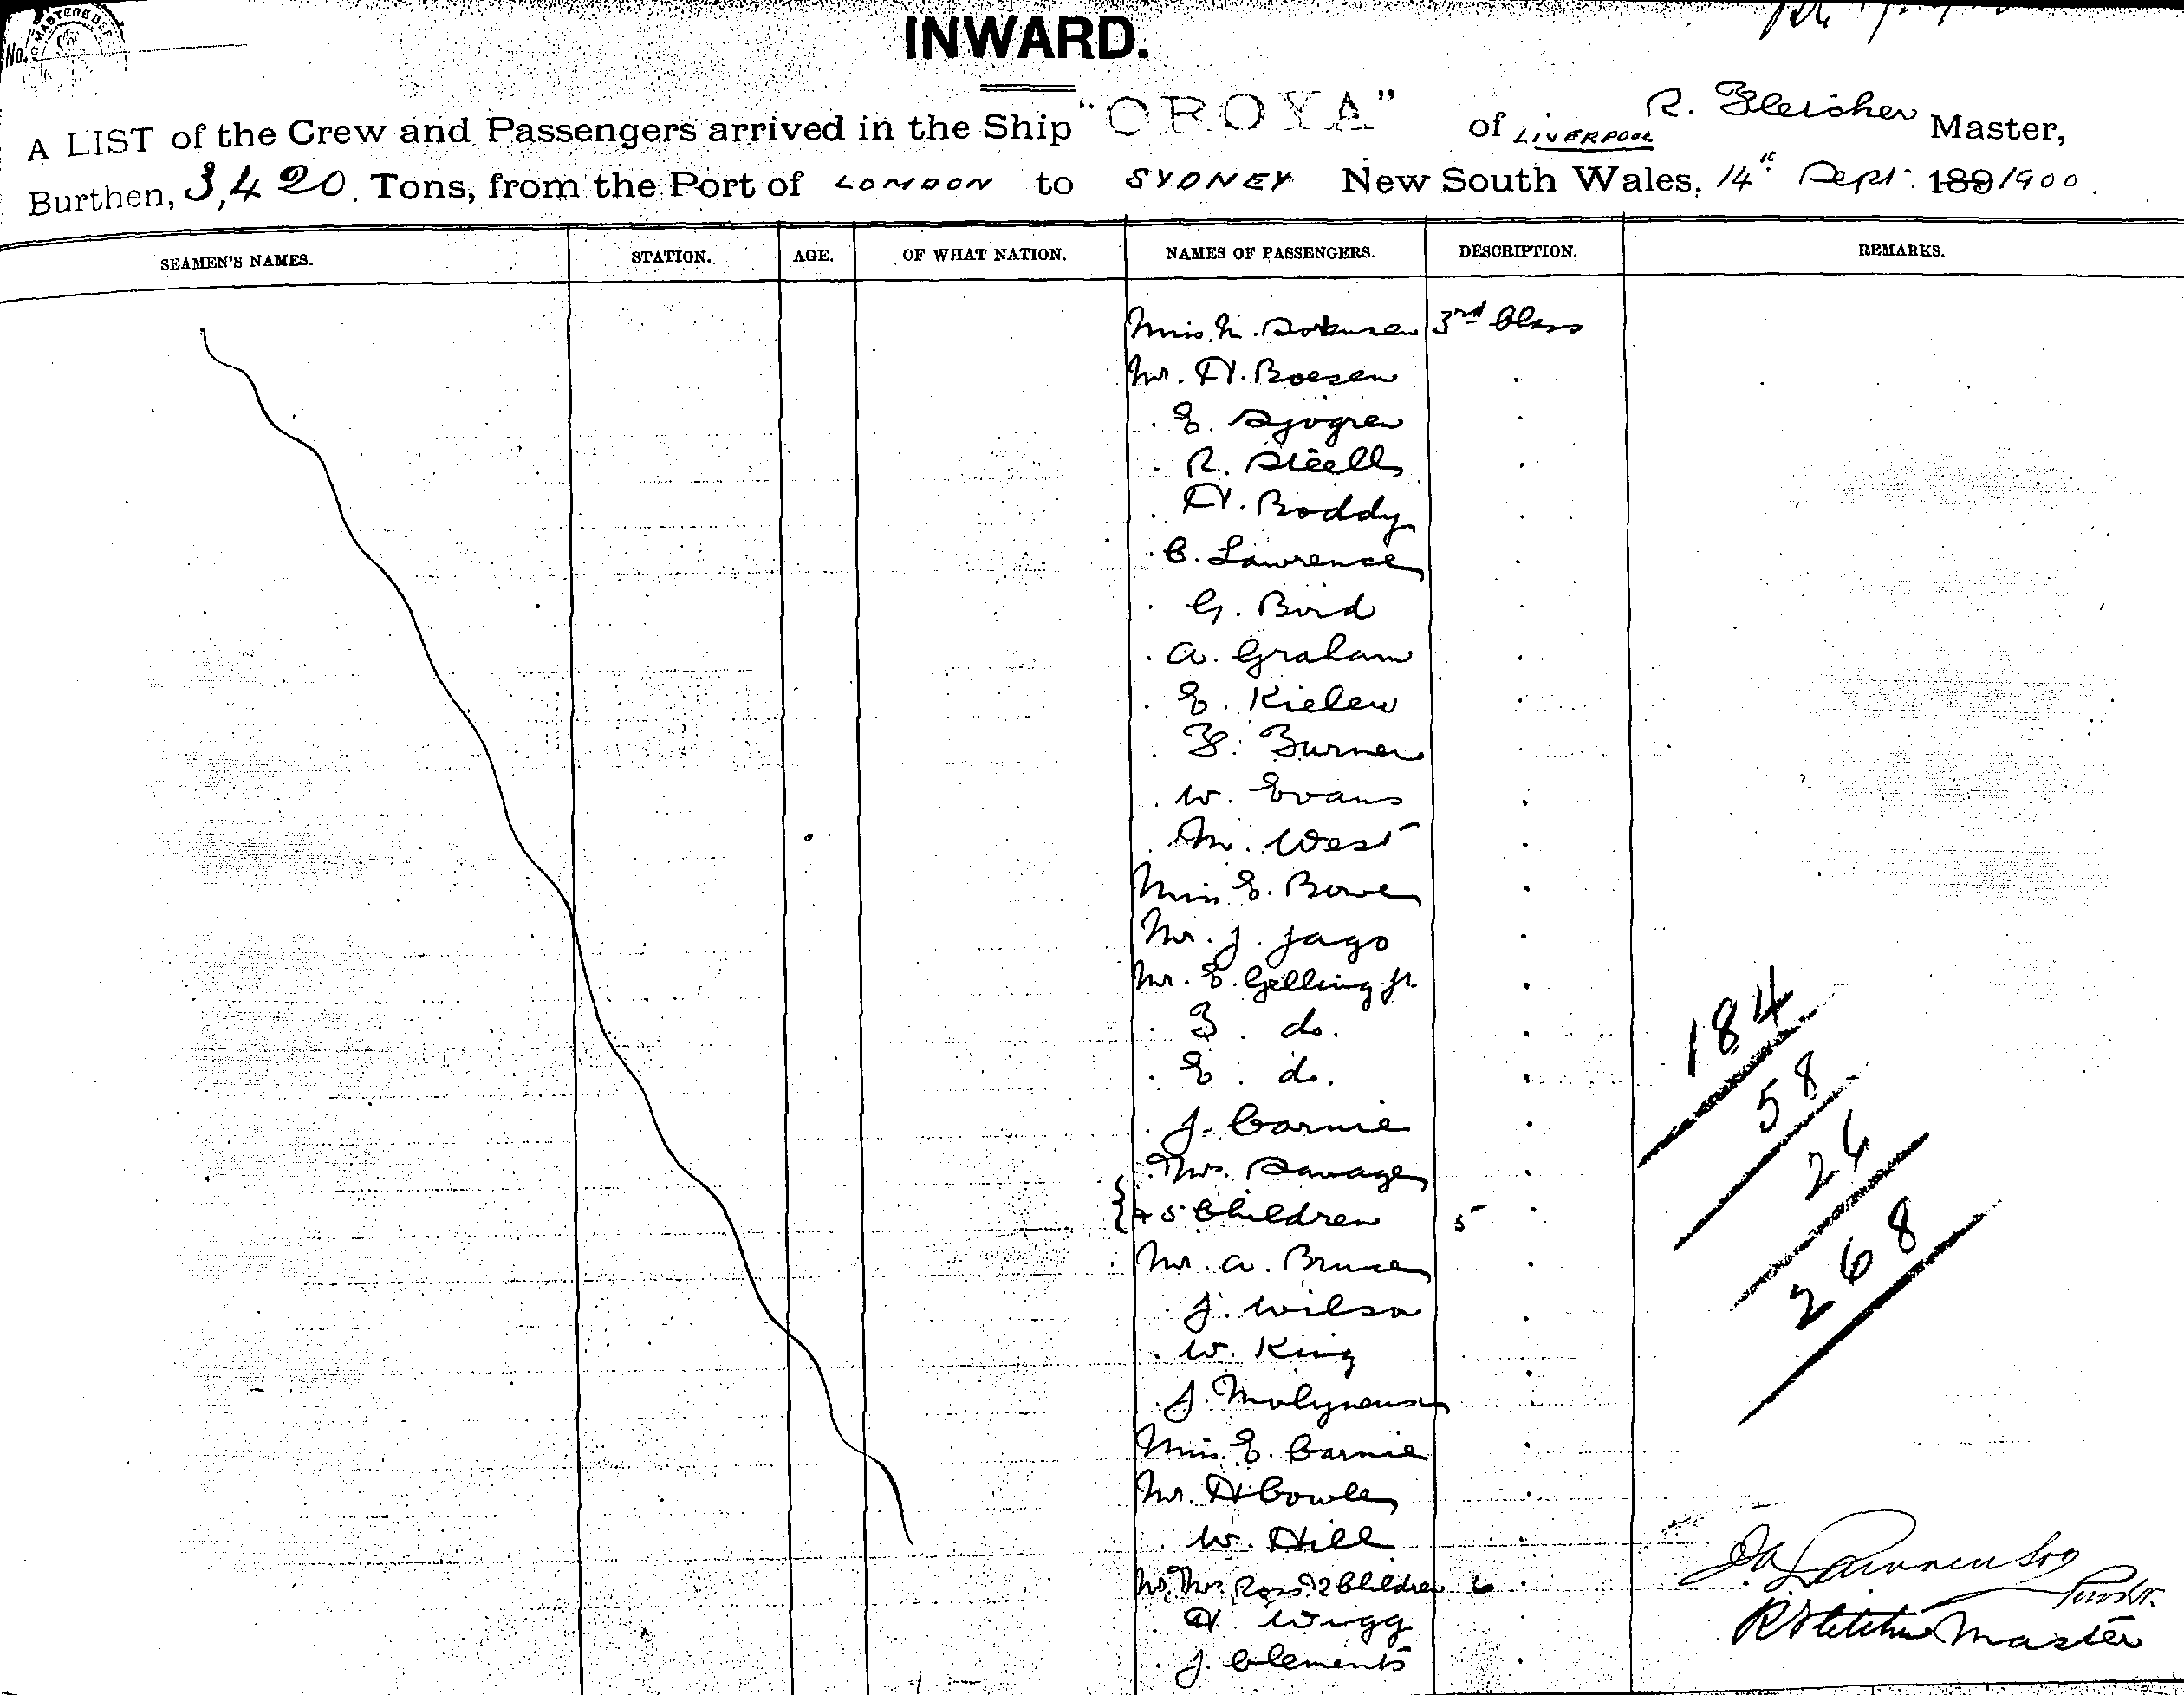 No.
INWARD.
A LIST of the Crew and Passengers arrived in the Ship "OROYA" of LIVERPOOL R. Fleicher Master,
Burthen, 3,420. Tons, from the Port of LONDON to SYDNEY New South Wales, 14th Sept. 189 1900.
SEAMEN'S NAMES. STATION. AGE. OF WHAT NATION. NAMES OF PASSENGERS. DESCRIPTION. REMARKS.
Miss 3rd Class
Mr. H. Boesen
E. Sjogren
R.
H. Boddy
C. Lawrence
G. Bird
A. Graham
E. Kielen
F.
W. Evans
M. West
Miss E. Bowe
Mr. J. Jago
Mr. E. Gelling Jr.
F. do.
E. do.
J. Carnie
Mrs. Savage
{ + 5 Children 5
Mr. A. Bruce
J. Wilson
W. King
J. Molyneux
Miss E. Carnie
Mr. H. Cowle
W. Hill
Mr. Mrs. Ross + 2 Children
H. Wigg
J. Clements
184
58
26
268
Purser
Master